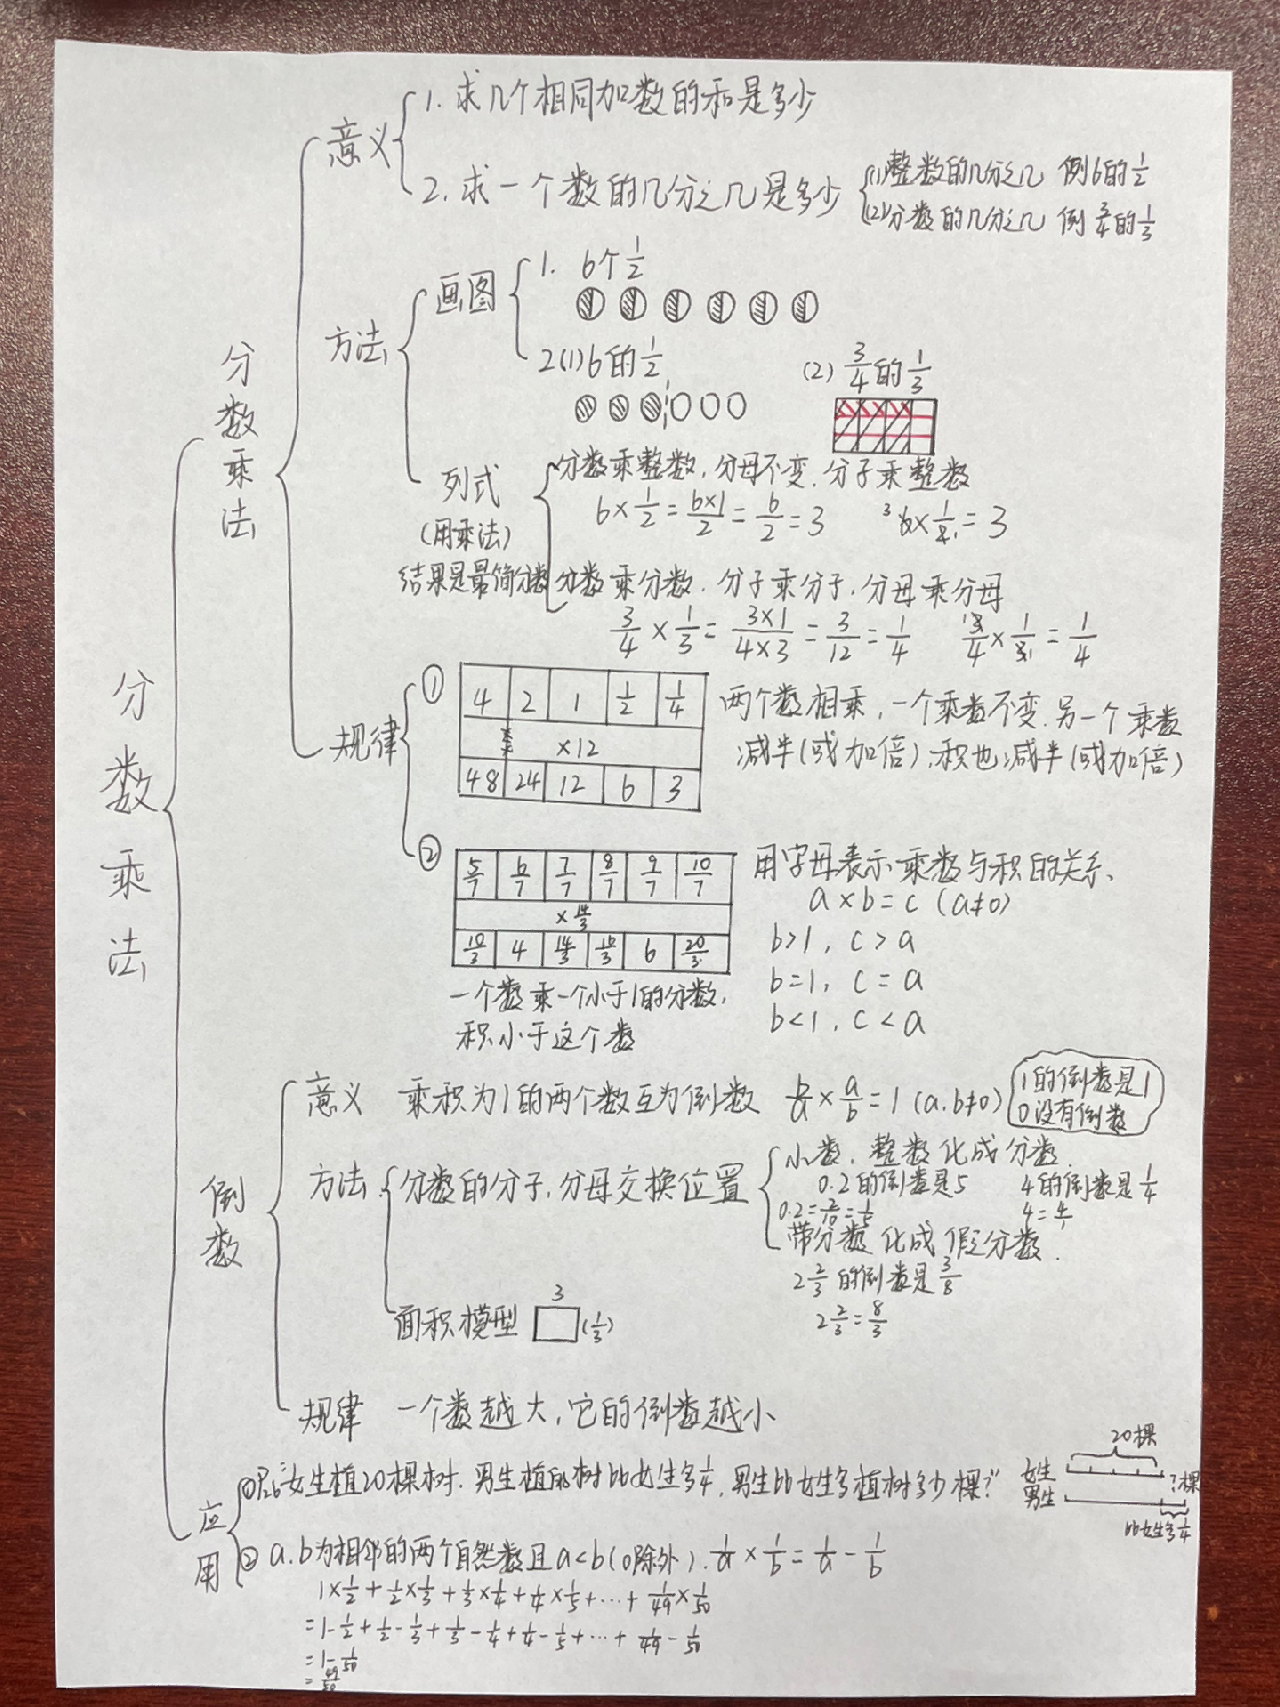 分数乘法
分数乘法
意义
1. 求几个相同加数的和是多少
2. 求一个数的几分之几是多少
(1)整数的几分之几 例6的1/2
(2)分数的几分之几 例3/4的1/3
方法
画图
1. 6个1/2
2(1)6的1/2
(2) 3/4的1/3
列式
(用乘法)
结果是最简分数
分数乘整数,分母不变.分子乘整数
6×1/2=6×1/2=6/2=3 6×1/2=3
分数乘分数.分子乘分子,分母乘分母
3/4×1/3=3×1/4×3=3/12=1/4 3/4×1/3=1/4
规律
①
4 2 1 1/2 1/4
×12
48 24 12 6 3
两个数相乘,一个乘数不变.另一个乘数
减半(或加倍),积也减半(或加倍)
②
5/7 6/7 7/7 8/7 9/7 10/7
×14/3
10/3 4 14/3 16/3 6 20/3
一个数乘一个小于1的分数,
积小于这个数
用字母表示乘数与积的关系
a×b=c (a≠0)
b>1, c>a
b=1, c=a
b<1, c<a
倒数
意义 乘积为1的两个数互为倒数 b/a×a/b=1 (a.b≠0)
1的倒数是1
0没有倒数
方法
分数的分子,分母交换位置
小数,整数化成分数.
0.2的倒数是5 4的倒数是1/4
0.2=2/10=1/5 4=4/1
带分数化成假分数.
2 2/3的倒数是3/8
2 2/3=8/3
面积模型 3 (1/3)
规律 一个数越大,它的倒数越小
应用
女生植20棵树.男生植的树比女生多1/4,男生比女生多植树多少棵?
20棵
女生
男生
?棵
比女生多1/4
② a.b为相邻的两个自然数且a<b(0除外).1/a×1/b=1/a-1/b
1×1/2+1/2×1/3+1/3×1/4+1/4×1/5+…+1/49×1/50
=1-1/2+1/2-1/3+1/3-1/4+1/4-1/5+…+1/49-1/50
=1-1/50
=49/50